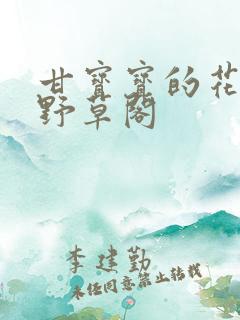 甘寳寳的花
野草閣
李建勤
未经同意禁止转载